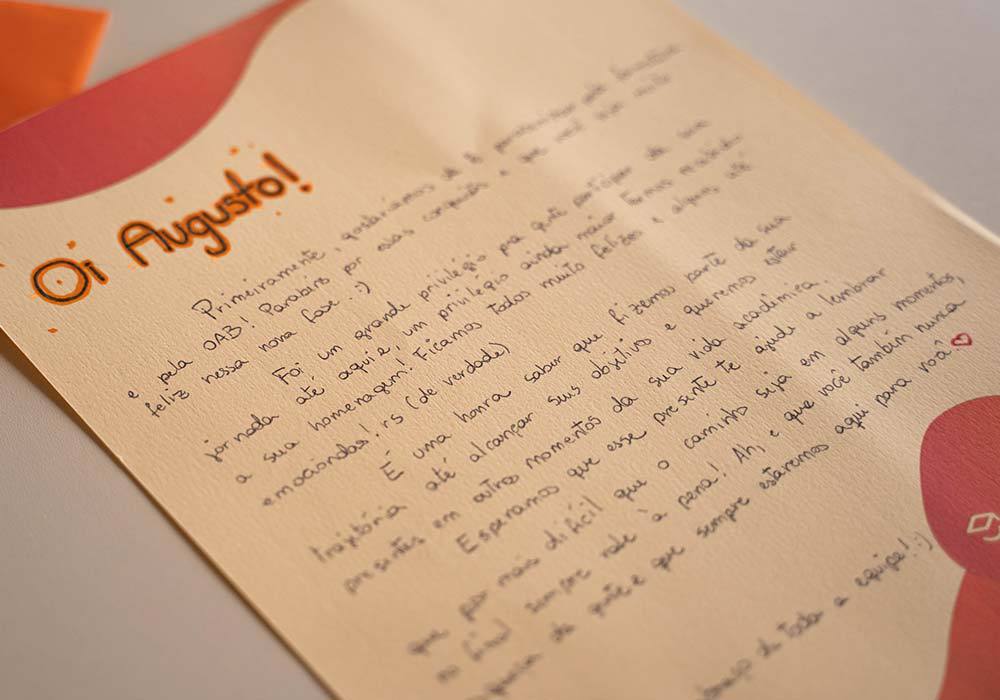 Oi Augusto!
Primeiramente, gostaríamos de te parabenizar pela formatura
e pela OAB! Parabéns por essas conquistas e que você seja muito
feliz nessa nova fase :)
Foi um grande privilégio pra gente participar da sua
jornada até aqui e, um privilégio ainda maior termos recebido
a sua homenagem! Ficamos todos muito felizes e alguns até
emocionados! rs (de verdade)
É uma honra saber que fizemos parte da sua
trajetória até alcançar seus objetivos e queremos estar
presentes em outros momentos da sua vida acadêmica.
Esperamos que esse presente te ajude a lembrar
que por mais difícil que o caminho seja em alguns momentos,
no final sempre vale à pena! Ah, e que você também nunca
da gente e que sempre estaremos aqui para você.
de toda a equipe! :)